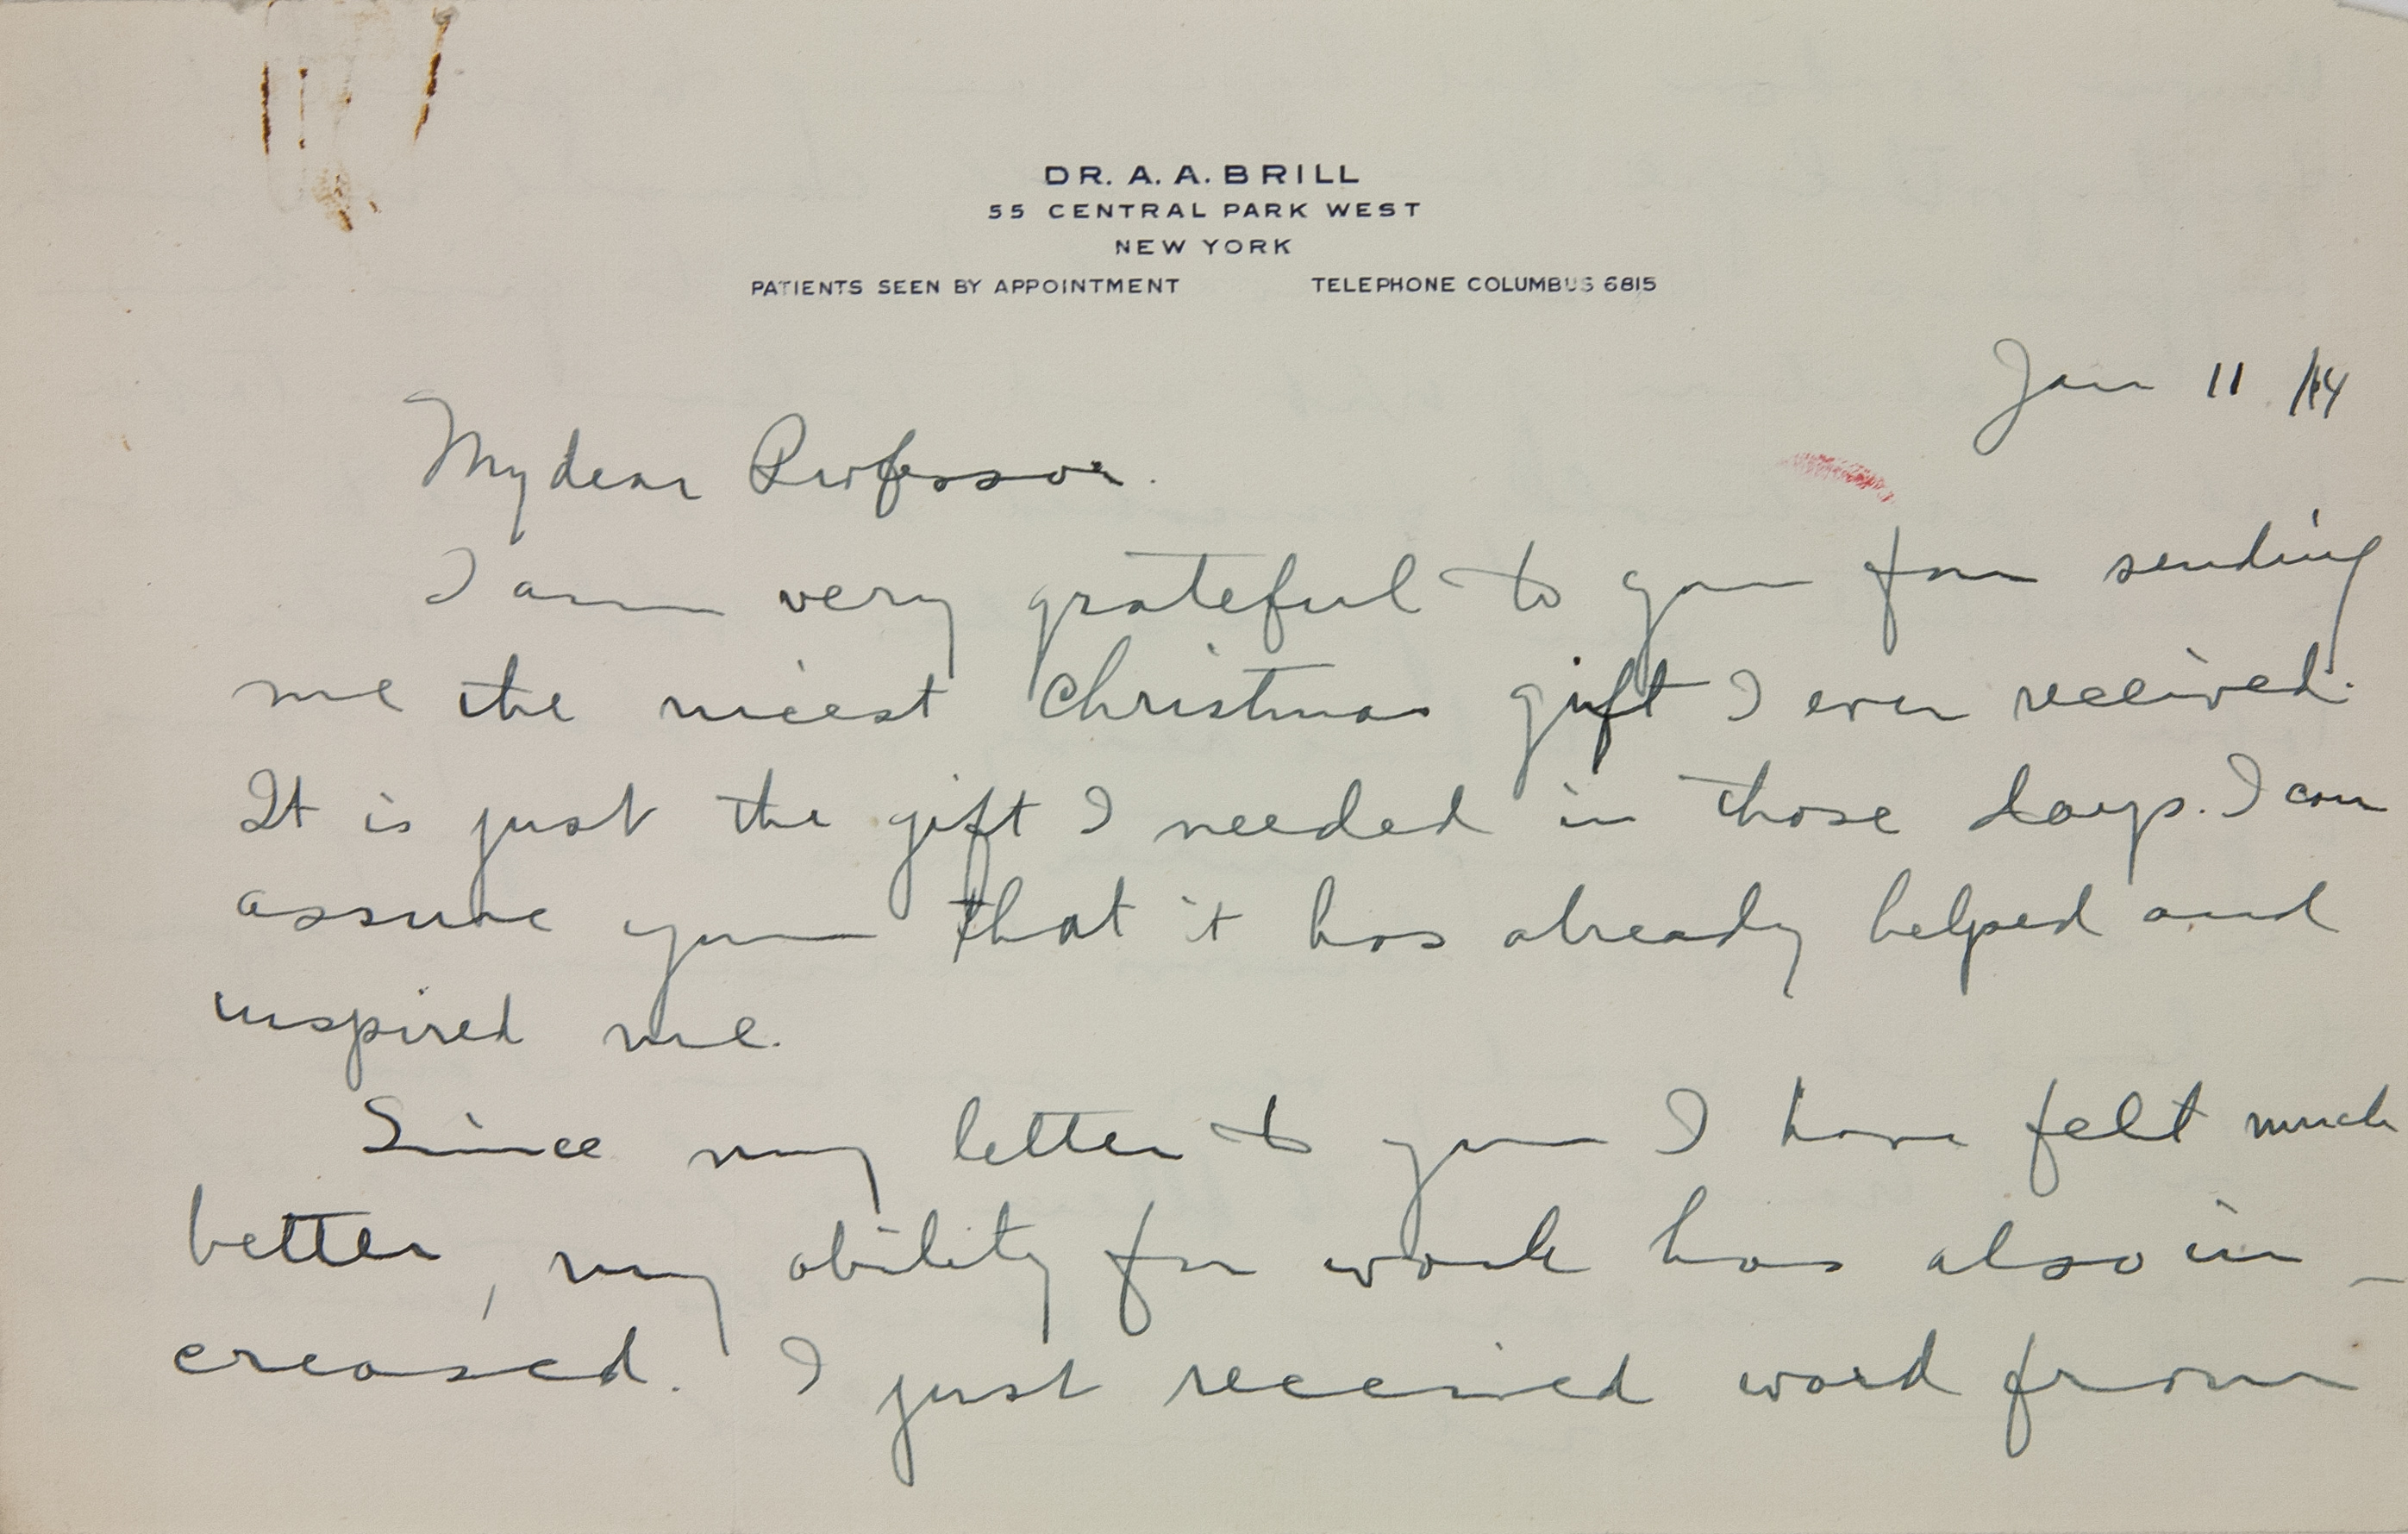 DR. A. A. BRILL
55 CENTRAL PARK WEST
NEW YORK
PATIENTS SEEN BY APPOINTMENT TELEPHONE COLUMBUS 6815
Jan 11 /14
My dear Professor.
I am very grateful to you for sending
me the nicest Christmas gift I ever received.
It is just the gift I needed in those days. I can
assure you that it has already helped and
inspired me.
Since my letter to you I have felt much
better, my ability for work has also in-
creased. I just received word from